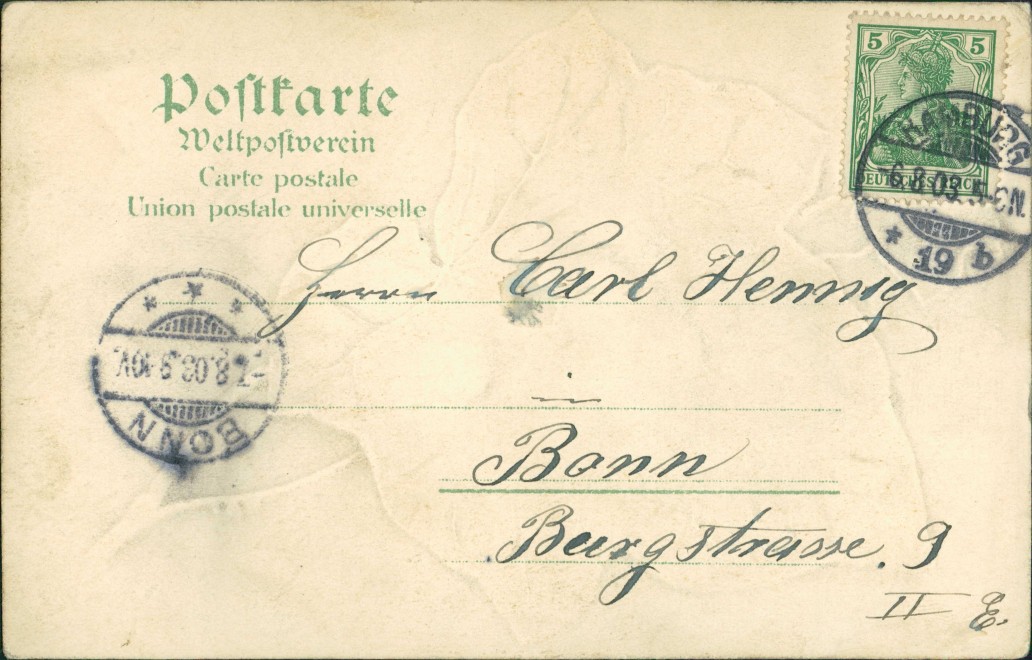 Postkarte
Weltpostverein
Carte postale
Union postale universelle
5 5
DEUTSCHES REICH
HAMBURG
6.8.03. 5-6N.
* 19 b
Herrn Carl Hennig
in
Bonn
Burgstrasse. 9
II E.
* * *
7.8.03. 9-10V.
BONN